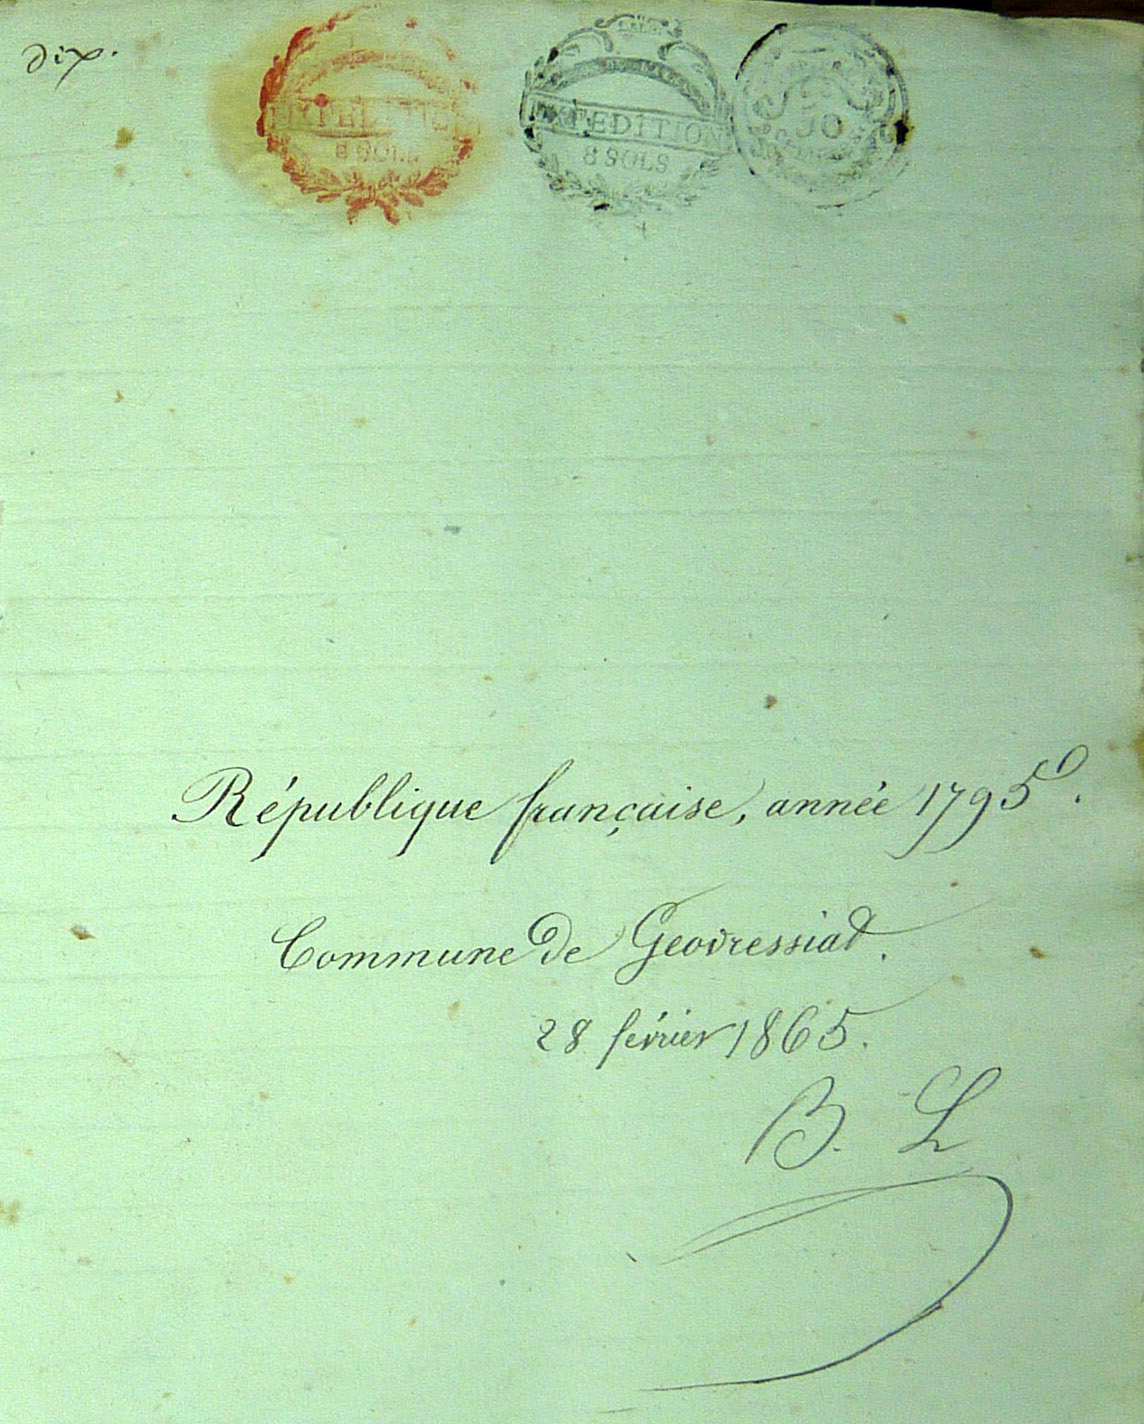 dix.
EXPEDITION
8 SOLS
EXPEDITION
8 SOLS
République française, année 1795.
Commune de Geovressiat.
28 février 1865.
B. L